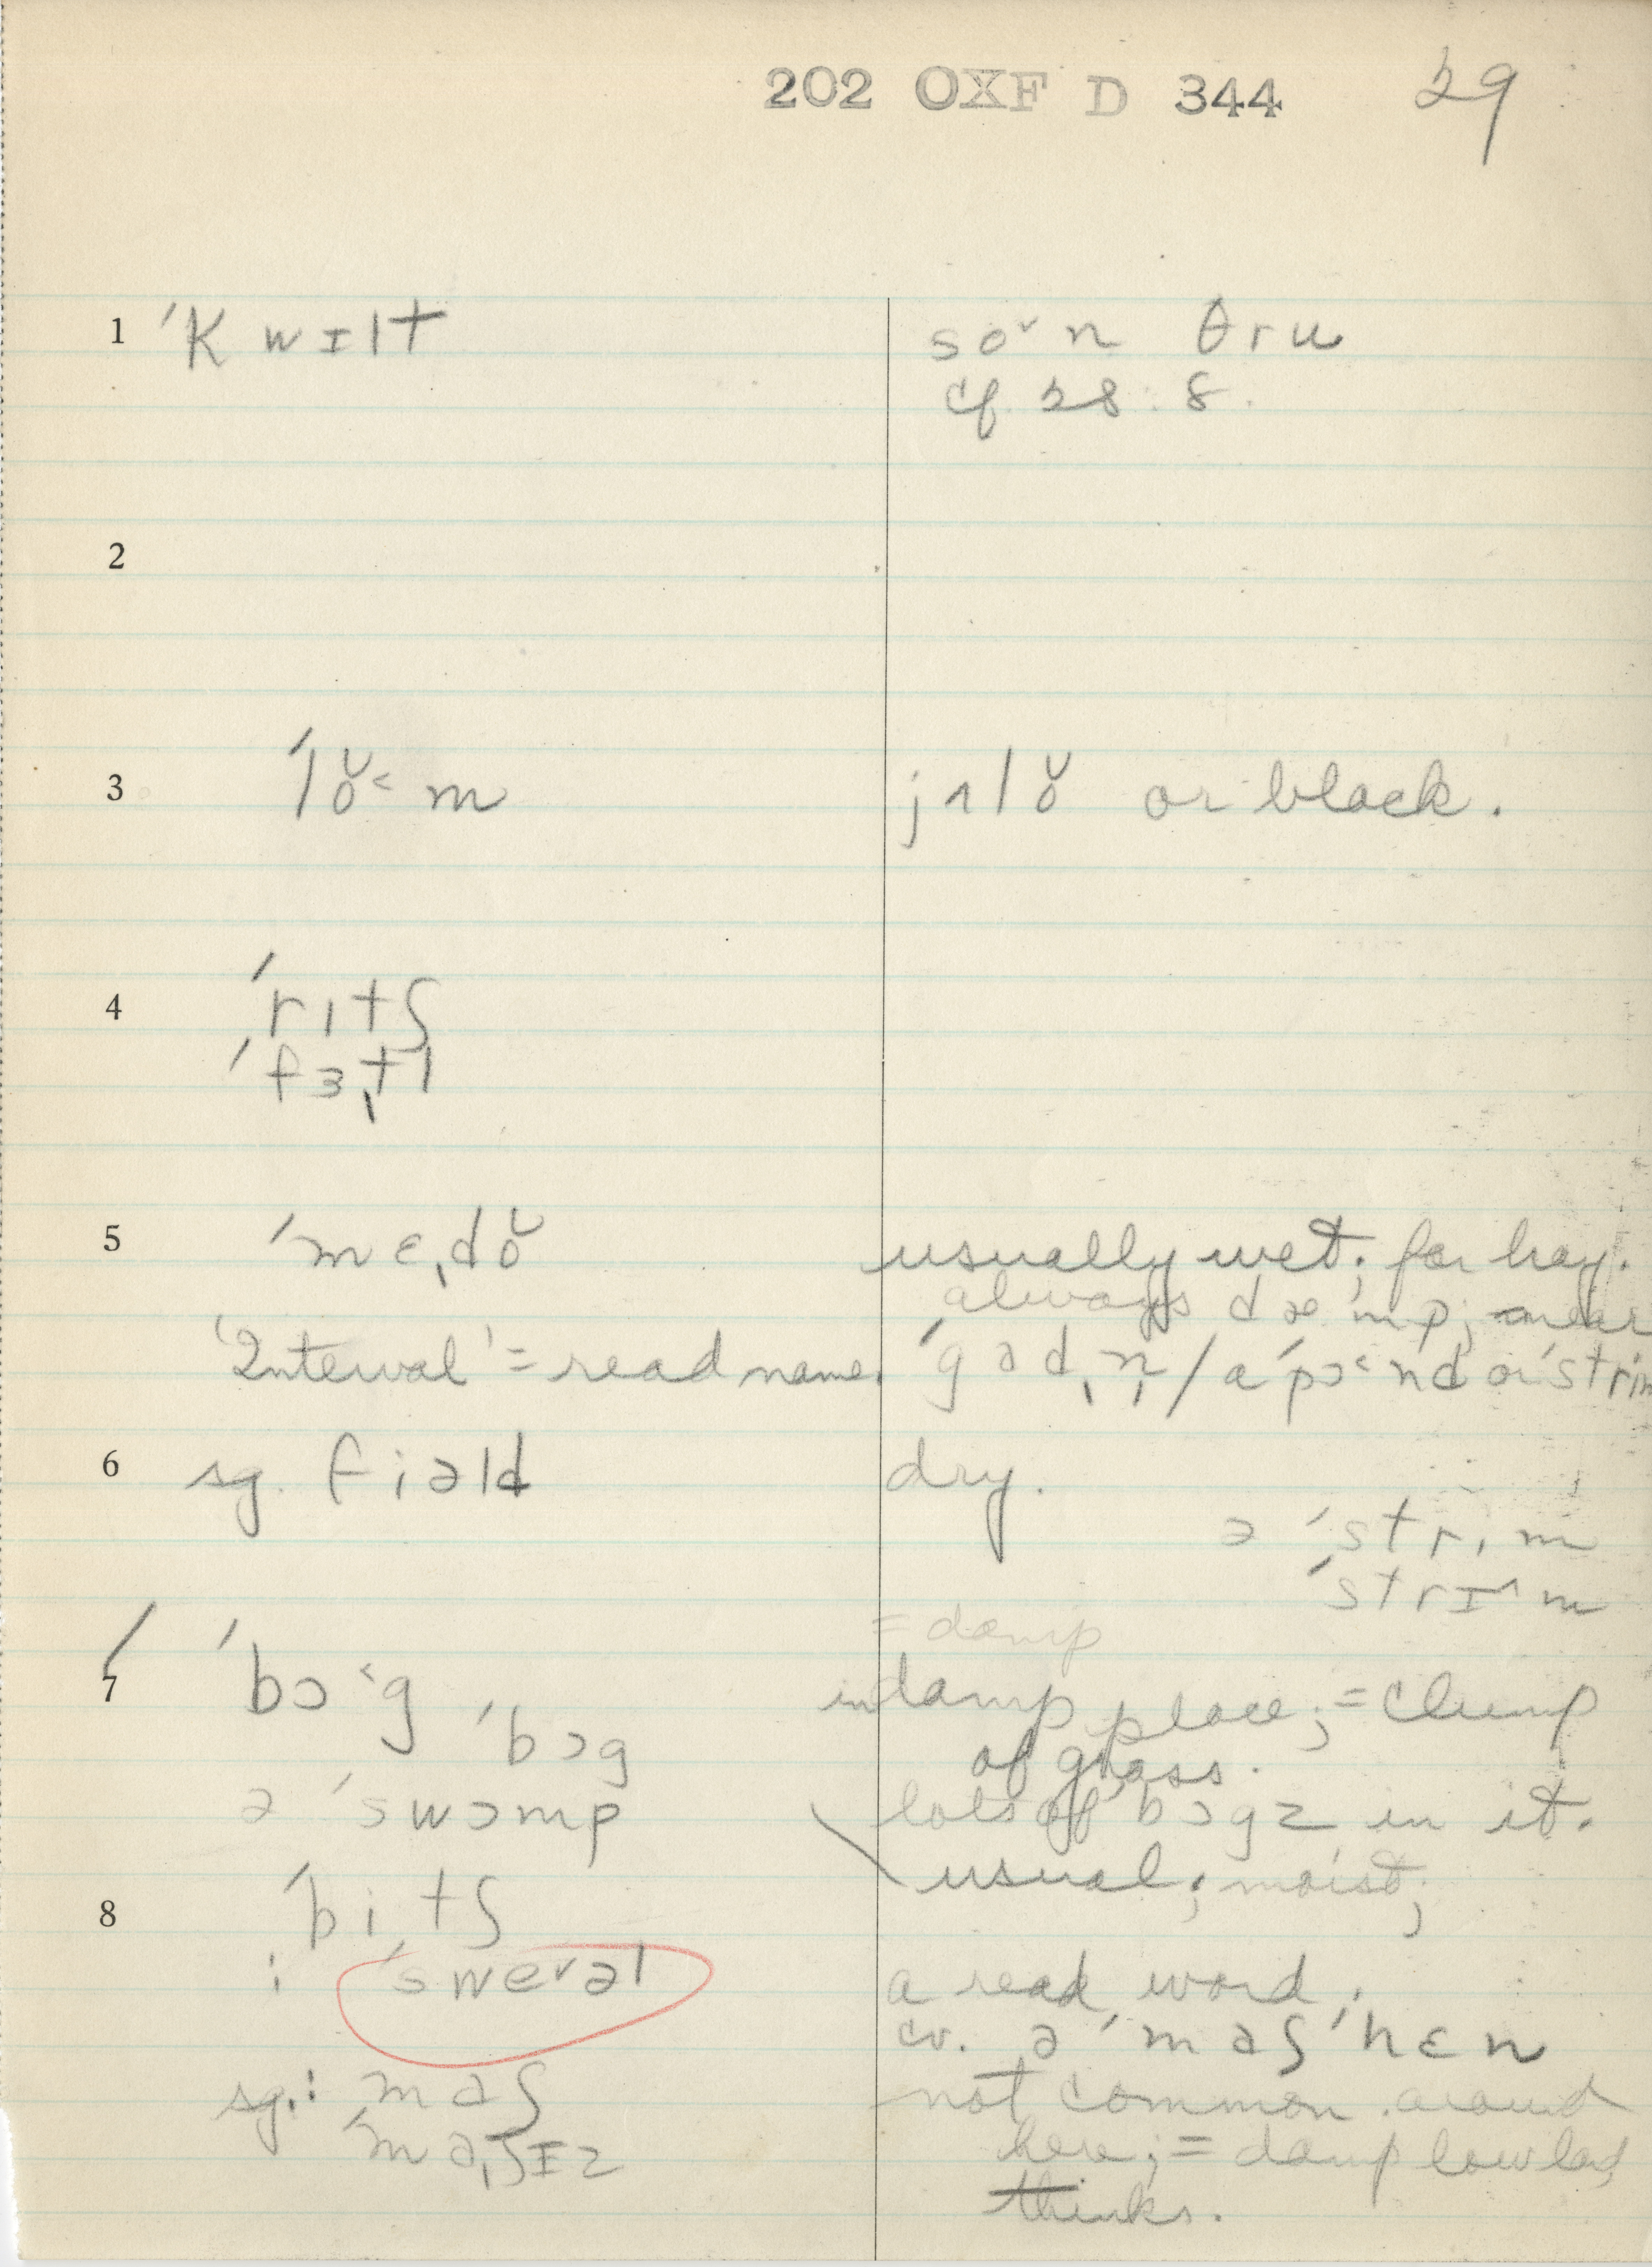 202 OXF D 344 29
1 ˈkwɪlt soˇn θru
cf. 28:8.
2
3 ˈloˇ˂m jɛloˇ or black.
4 ˈritʃ
ˈfɜˌtl
5 ˈmɛˌdoˇ usually wet; for hay.
always dæmp; near
'Interval' = read name. a ˈpɔ˂nd or ˈstrim
6 sg. fiəld dry.
ə ˈstrim
ˈstrɪ^m
= damp
7 ˈbɔ˂g in damp place; = clump
ˈbɔg of grass.
ə ˈswɔmp lots of bɔgz in it.
usual; moist;
8 ˈbiˌtʃ
: ˈsweˇəl a read word.
cv. ə ˈmaʃ ˈhɛn
sg.: maʃ not common around
ˈmaˌʃɪz here; = damp low
thinks.